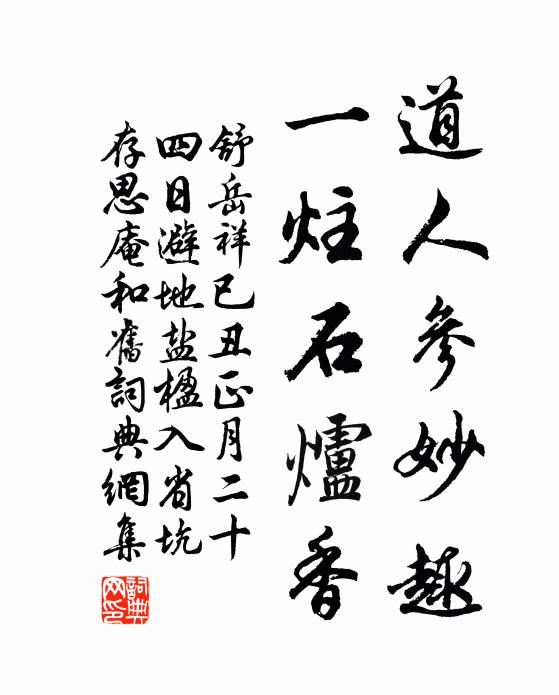 道人參妙趣
一炷石爐香
舒岳祥己丑正月二十
四日避地盐楹入省坑
存思庵和舊詞典網集
詞典網印